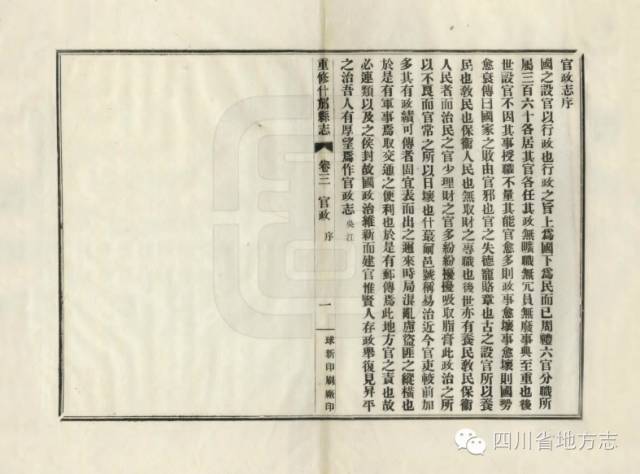 官政志序
國之設官以行政也行政之官上爲國下爲民而已周禮六官分職所
屬三百六十各居其官各任其政無曠職無冗員無廢事典至重也後
世設官不因其事授職不量其能官愈多則政事愈壞事愈壞則國勢
愈衰傳曰國家之敗由官邪也官之失德寵賂章也古之設官所以養
民也敎民也保衞人民也無取財之專職也後世亦有養民敎民保衞
人民者而治民之官少理財之官多紛紛擾擾吸取脂膏此政治之所
以不良而官常之所以日壞也什蕞爾邑號稱易治近今官吏較前加
多其有政績可傳者固宜表而出之邇來時局混亂慮盜匪之縱橫也
於是有軍事焉取交通之便利也於是有郵傳焉此地方官之責也故
必連類以及之侯封故國政治維新而建官惟賢人存政舉復見昇平
之治吾人有厚望焉作官政志 吳江
重修什邡縣志 卷三 官政 序 一 球新印刷廠印
四川省地方志